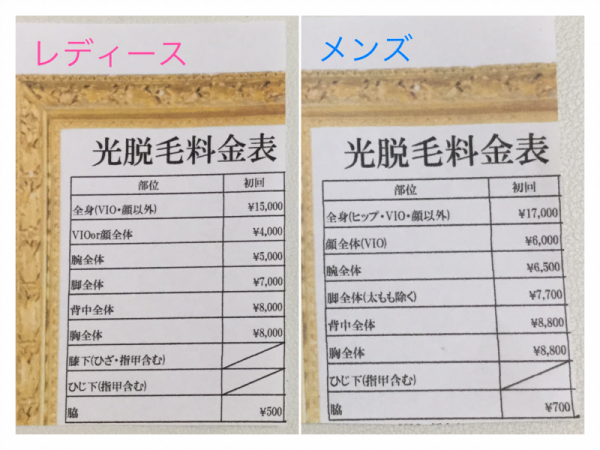 レディース
光脱毛料金表
部位 初回
全身(VIO・顔以外) ¥15,000
VIOor顔全体 ¥4,000
腕全体 ¥5,000
脚全体 ¥7,000
背中全体 ¥8,000
胸全体 ¥8,000
膝下(ひざ・指甲含む)
ひじ下(指甲含む)
脇 ¥500
メンズ
光脱毛料金表
部位 初回
全身(ヒップ・VIO・顔以外) ¥17,000
顔全体(VIO) ¥6,000
腕全体 ¥6,500
脚全体(太もも除く) ¥7,700
背中全体 ¥8,800
胸全体 ¥8,800
ひじ下(指甲含む)
脇 ¥700